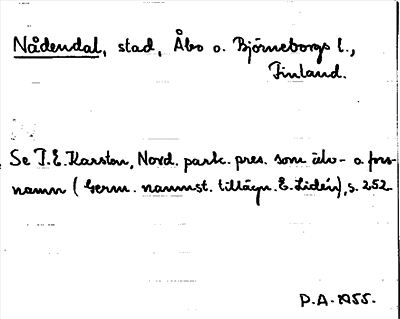 Nådendal, stad, Åbo o. Björneborgs l.,
Finland.
Se T.E. Karsten, Nord. park. pres. som älv- o. fors-
namn (Germ. namnst. tillägn. E. Lidén), s. 252.
P.A. 1955.